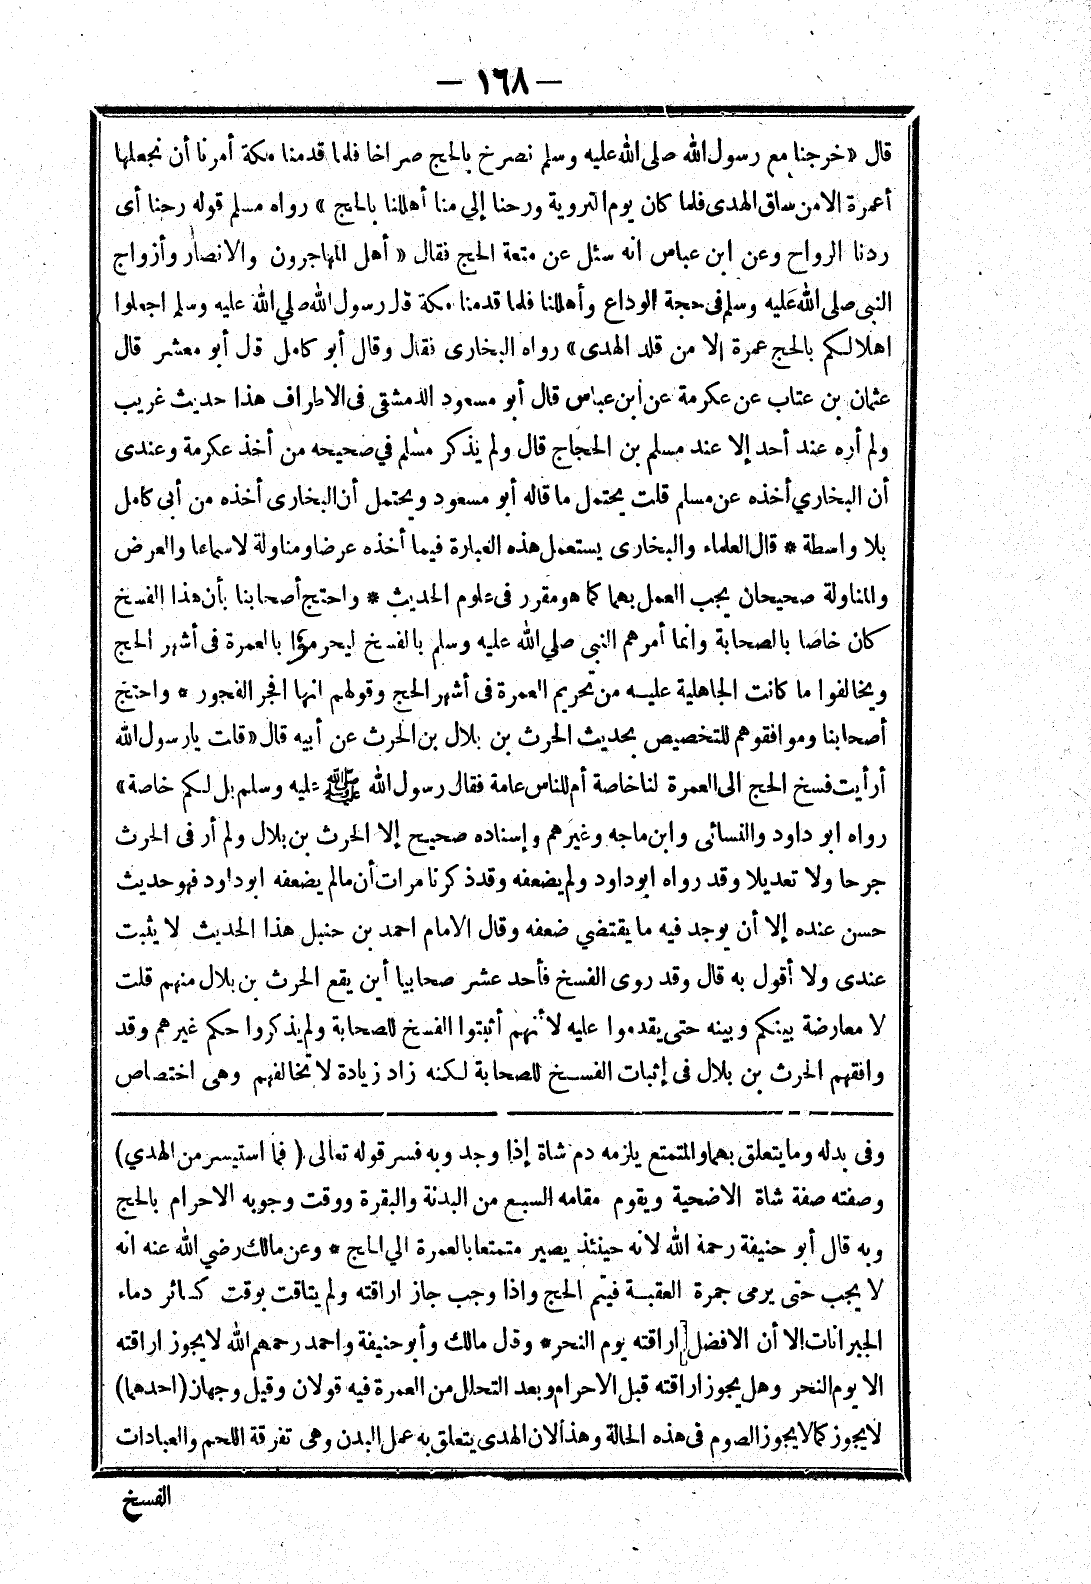 — ١٦٨ —
قال « خرجنا مع رسول الله صلى الله عليه وسلم نصرخ بالحج صراخا فلما قدمنا مكة أمرنا أن نجعلها
أعمرة الا من ساق الهدى فلما كان يوم التروية ورحنا إلي منا أهللنا بالحج » رواه مسلم قوله رحنا أى
ردنا الرواح وعن ابن عباس انه سئل عن متعة الحج فقال « أهل المهاجرون والانصار وأزواج
النبى صلى الله عليه وسلم فى حجة الوداع وأهللنا فلما قدمنا مكة قل رسول الله صلي الله عليه وسلم اجعلوا
اهلالكم بالحج عمرة إلا من قلد الهدى » رواه البخارى فقال وقال أبو كامل قل أبو معشر قال
عثمان بن عتاب عن عكرمة عن ابن عباس قال أبو مسعود الدمشقى فى الاطراف هذا حديث غريب
ولم أره عند أحد إلا عند مسلم بن الحجاج قال ولم يذكر مسلم في صحيحه من أخذ عكرمة وعندى
أن البخاري أخذه عن مسلم قلت يحتمل ما قاله أبو مسعود ويحتمل أن البخارى أخذه من أبى كامل
بلا واسطة * قال العلماء والبخارى يستعمل هذه العبارة فيما أخذه عرضا ومناولة لا سماعا والعرض
والمناولة صحيحان يجب العمل بهما كما هو مقرر فى علوم الحديث * واحتج أصحابنا بأن هذا الفسخ
كان خاصا بالصحابة وانما أمرهم النبى صلي الله عليه وسلم بالفسخ ليحرموا بالعمرة فى أشهر الحج
ويخالفوا ما كانت الجاهلية عليه من تحريم العمرة فى أشهر الحج وقولهم انها افجر الفجور * واحتج
أصحابنا وموافقوهم للتخصيص بحديث الحرث بن بلال بن الحرث عن أبيه قال « قلت يارسول الله
أرأيت فسخ الحج الى العمرة لنا خاصة أم للناس عامة فقال رسول الله ﷺ عليه وسلم بل لكم خاصة »
رواه ابو داود والنسائى وابن ماجه وغيرهم وإسناده صحيح إلا الحرث بن بلال ولم أر فى الحرث
جرحا ولا تعديلا وقد رواه ابوداود ولم يضعفه وقد ذكرنا مرات أن مالم يضعفه ابوداود فهو حديث
حسن عنده إلا أن يوجد فيه ما يقتضي ضعفه وقال الامام احمد بن حنبل هذا الحديث لا يثبت
عندى ولا أقول به قال وقد روى الفسخ فأحد عشر صحابيا أين يقع الحرث بن بلال منهم قلت
لا معارضة بينكم وبينه حتى يقدموا عليه لأنهم أثبتوا الفسخ للصحابة ولم يذكروا حكم غيرهم وقد
وافقهم الحرث بن بلال فى إثبات الفسخ للصحابة لكنه زاد زيادة لا تخالفهم وهى اختصاص
وفى بدله وما يتعلق بهما والمتمتع يلزمه دم شاة إذا وجد وبه فسر قوله تعالى ( فما استيسر من الهدي )
وصفته صفة شاة الاضحية ويقوم مقامه السبع من البدنة والبقرة ووقت وجوبه الاحرام بالحج
وبه قال أبو حنيفة رحمة الله لانه حينئذ يصير متمتعا بالعمرة الي الحج * وعن مالك رضي الله عنه انه
لا يجب حتى يرمى جمرة العقبة فيتم الحج واذا وجب جاز اراقته ولم يتأقت بوقت كسائر دماء
الجبرانات الا أن الافضل اراقته يوم النحر * وقل مالك وأبو حنيفة واحمد رحمهم الله لا يجوز اراقته
الا يوم النحر وهل يجوز اراقته قبل الاحرام وبعد التحلل من العمرة فيه قولان وقيل وجهان (احدهما)
لا يجوز كما لا يجوز الصوم فى هذه الحالة وهذا لان الهدى يتعلق به عمل البدن وهى تفرقة اللحم والعبادات
الفسخ